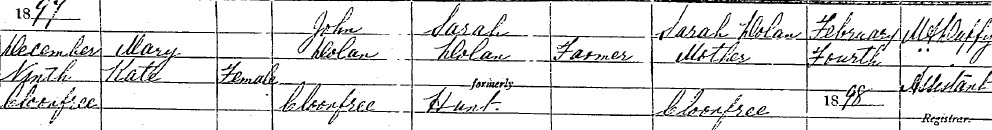 1897 John Sarah Sarah Dolan February
December Mary Dolan Dolan Farmer Mother Fourth
Ninth Kate Female formerly Assistant
Cloonfree Cloonfree Hunt Cloonfree 1898 Registrar.